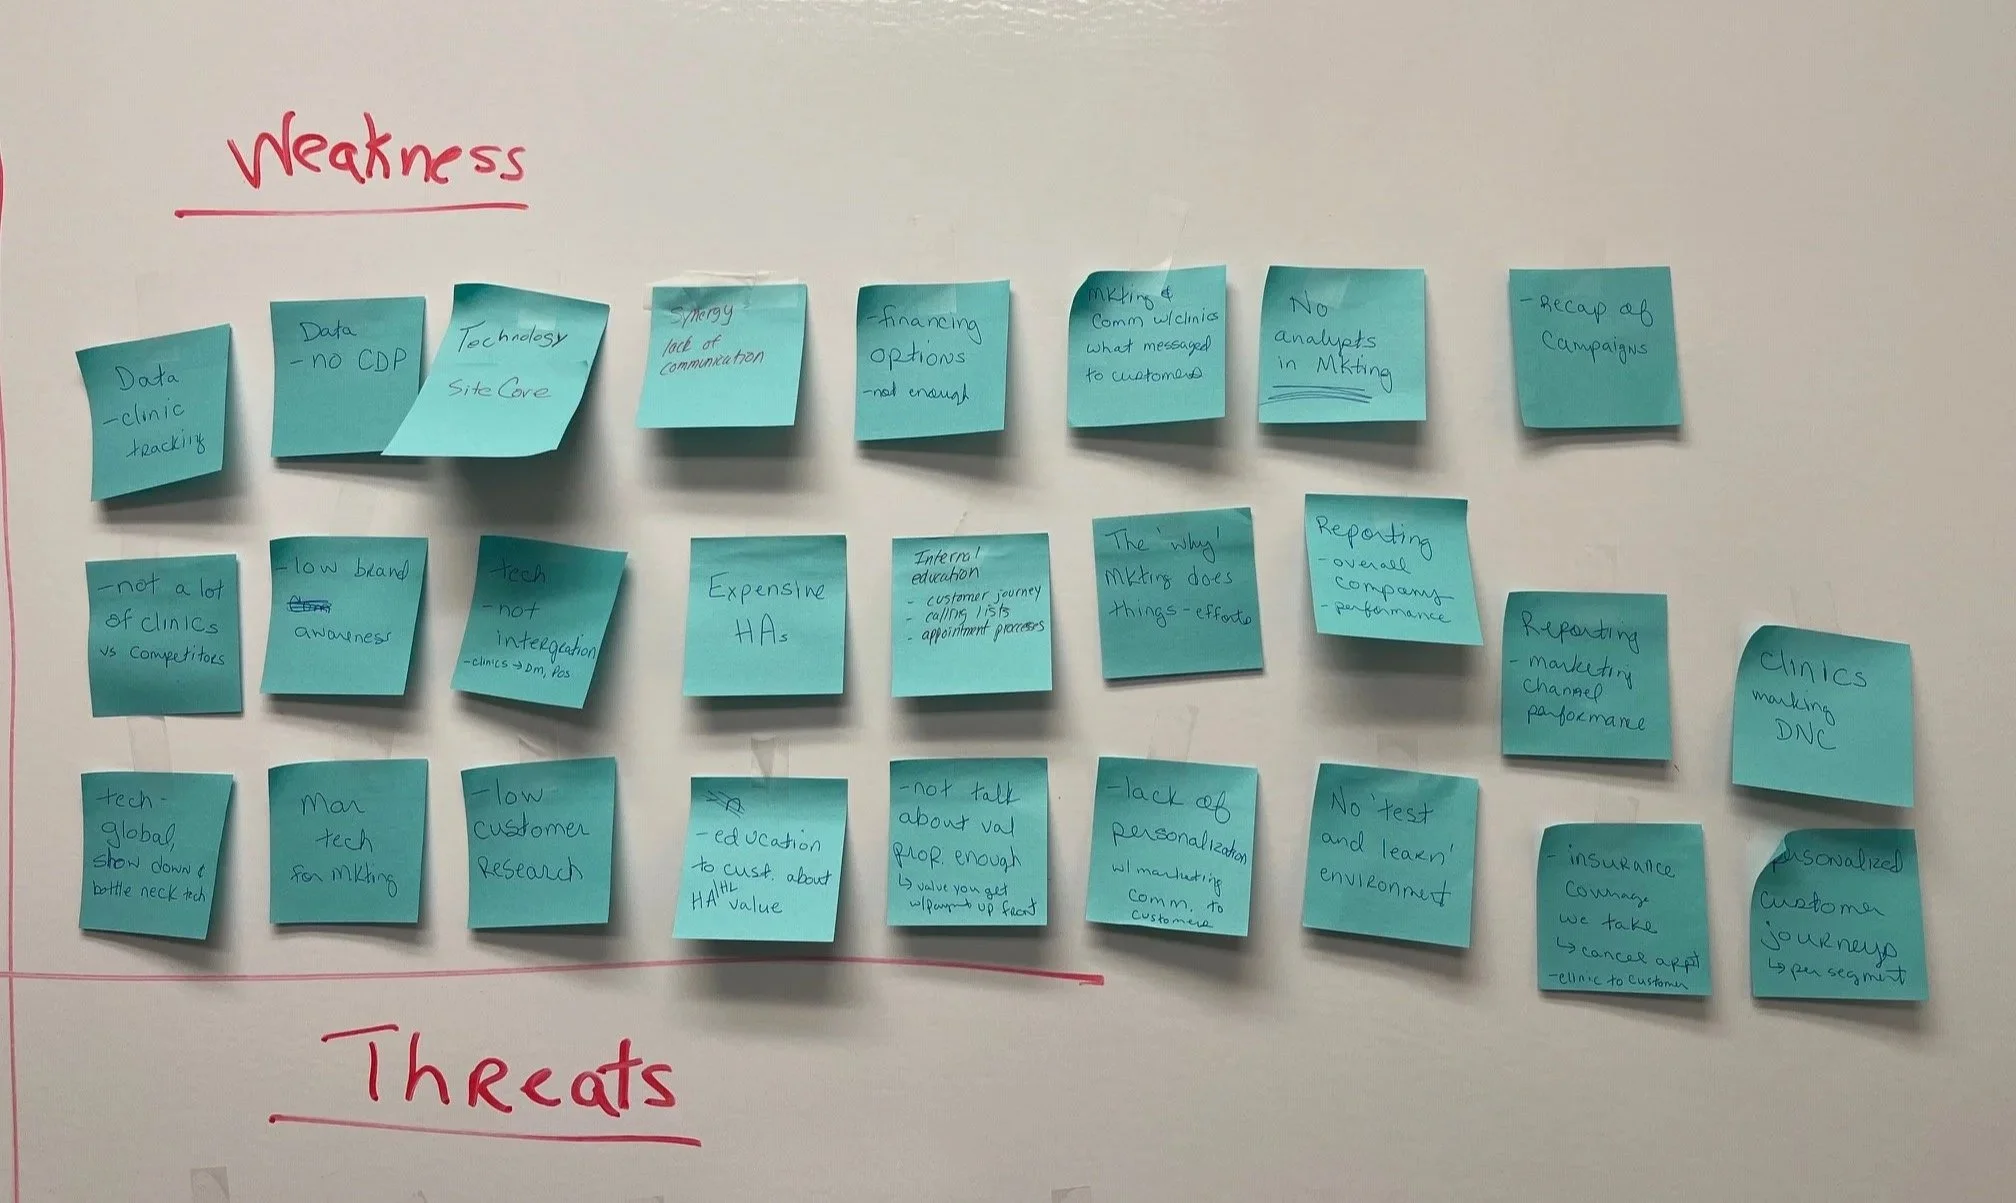 Weakness
Data
-clinic
tracking
Data
-no CDP
Technology
SiteCore
Synergy
lack of
communication
-financing
options
-not enough
Mkting &
Comm w/clinics
what messaged
to customers
No
analysts
in Mkting
-Recap of
Campaigns
-not a lot
of clinics
vs competitors
-low brand
awareness
tech
-not
intergration
-clinics → Dm, Pos
Expensive
HAs
Internal
education
- customer journey
- calling lists
- appointment processes
The 'why'
Mkting does
things-efforts
Reporting
-overall
company
-performance
Reporting
- marketing
channel
performance
clinics
marking
DNC
tech-
global,
show down &
bottle neck tech
Mar
tech
for Mkting
-low
customer
Research
-education
to cust. about
HA/HL value
-not talk
about val
prop. enough
↳ value you get
w/paymt up front
-lack of
personalization
w/ marketing
comm. to
customers
No 'test
and learn'
environment
- insurance
coverage
we take
↳ cancel appt
-clinic to customer
personalized
customer
journeys
↳ per segment
Threats